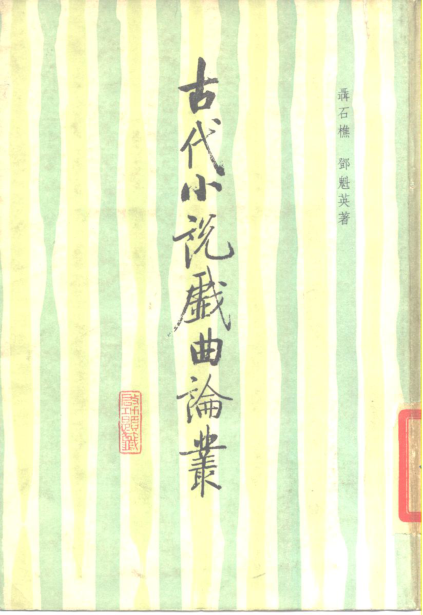 聶石樵 鄧魁英著
古代小说戲曲論叢